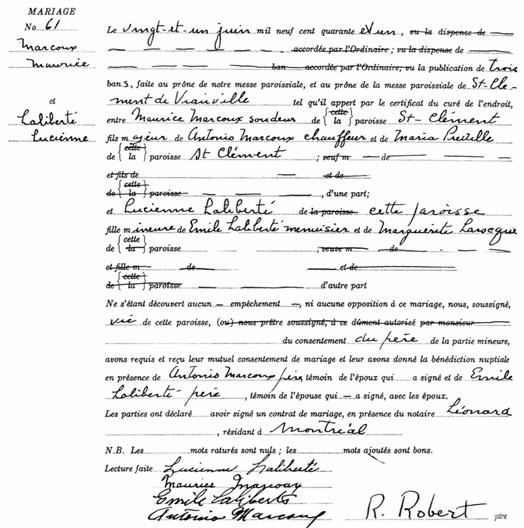 MARIAGE
No 61
Marcoux
Maurice
et
Laliberté
Lucienne
Le vingt-et un juin mil neuf cent quarante et un, ou la dispense de
accordée par l'Ordinaire; ou la dispense de
ban accordée par l'Ordinaire; ou la publication de trois
bans, faite au prône de notre messe paroissiale, et au prône de la messe paroissiale de St-Clé-
ment de Viauville tel qu'il appert par le certificat du curé de l'endroit,
entre Maurice Marcoux soudeur de { cette la } paroisse St-Clément
fils majeur de Antonio Marcoux chauffeur et de Maria
de { cette la } paroisse St Clément ; veuf m de
et fils de et de
de { cette la } paroisse , d'une part;
et Lucienne Laliberté de la paroisse cette paroisse
fille mineure de Emile Laliberté menuisier et de Marguerite Larocque
de { cette la } paroisse ; veuve m de
et fille m de et de
de { cette la } paroisse d'autre part
Ne s'étant découvert aucun — empêchement —, ni aucune opposition à ce mariage, nous, soussigné,
vic de cette paroisse, (ou) nous prêtre soussigné, à ce dûment autorisé par monsieur
du consentement du père de la partie mineure,
avons requis et reçu leur mutuel consentement de mariage et leur avons donné la bénédiction nuptiale
en présence de Antonio Marcoux père témoin de l'époux qui a signé et de Emile
Laliberté père , témoin de l'épouse qui — a signé, avec les époux.
Les parties ont déclaré avoir signé un contrat de mariage, en présence du notaire Léonard
, résidant à Montréal
N.B. Les mots raturés sont nuls ; les mots ajoutés sont bons.
Lecture faite Lucienne Laliberté
Maurice Marcoux
Emile Laliberté
Antonio Marcoux R. Robert ptre